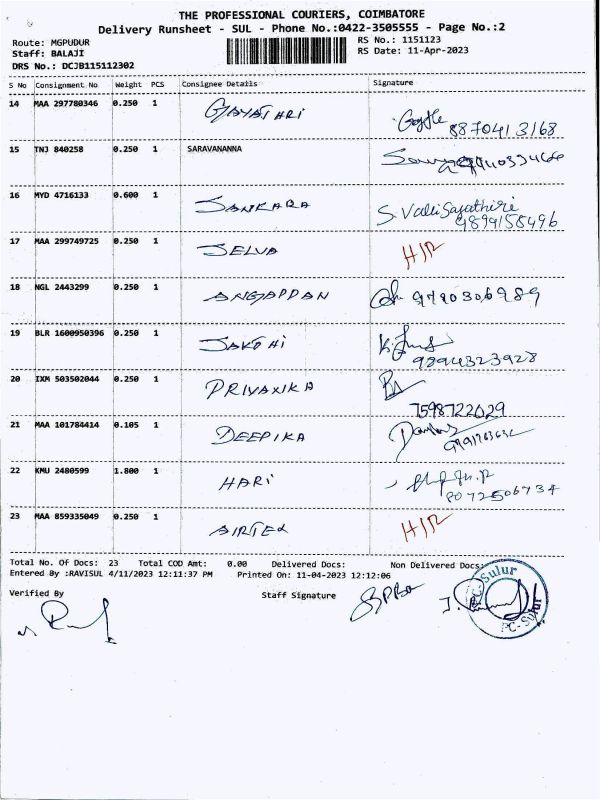 THE PROFESSIONAL COURIERS, COIMBATORE
Delivery Runsheet - SUL - Phone No.:0422-3505555 - Page No.:2
Route: MGPUDUR
RS No.: 1151123
Staff: BALAJI
RS Date: 11-Apr-2023
DRS No.: DCJB115112302
S No Consignment No Weight PCS Consignee Details Signature
14 MAA 297780346 0.250 1 GAYATHRI
8870413168
15 TNJ 840258 0.250 1 SARAVANANNA
16 MYD 4716133 0.600 1 SANKARA S. Valli Gayathiri
9899158496
17 MAA 299749725 0.250 1 SELVA H/R
18 NGL 2443299 0.250 1 ANGAPPAN 9790306989
19 BLR 1600950396 0.250 1 SAKTHI
9894323928
20 IXM 503502044 0.250 1 PRIYANKA
7598722029
21 MAA 101784414 0.105 1 DEEPIKA
22 KMU 2480599 1.800 1 HARI
8072506734
23 MAA 859335049 0.250 1 AIRTEL H/R
Total No. Of Docs: 23 Total COD Amt: 0.00 Delivered Docs: Non Delivered Docs:
Entered By :RAVISUL 4/11/2023 12:11:37 PM Printed On: 11-04-2023 12:12:06
Verified By Staff Signature
PC-Sulur
PC-Sulur